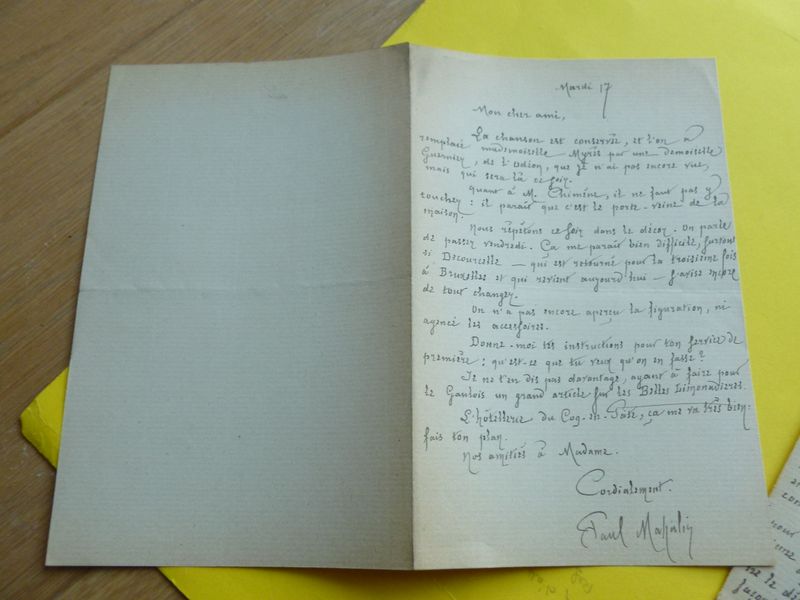 Mardi 17
Mon cher ami,
La chanson est conservée, et l'on a
remplacé mademoiselle Myrès par une demoiselle
Guernier, de l'Odéon, que je n'ai pas encore vue,
mais qui sera là ce soir.
quant à M. Chimène, il ne faut pas y
toucher : il paraît que c'est le porte-veine de la
maison.
Nous répétons ce soir dans le décor. On parle
de passer vendredi. Ça me paraît bien difficile, surtout
si Decourcelle — qui est retourné pour la troisième fois
à Bruxelles et qui revient aujourd'hui — s'avise encore
de tout changer.
On n'a pas encore aperçu la figuration, ni
agencé les accessoires.
Donne-moi tes instructions pour ton service de
première : qu'est-ce que tu veux qu'on en fasse ?
Je ne t'en dis pas davantage, ayant à faire pour
le Gaulois un grand article sur les Belles Limonadières.
L'hôtellerie du Coq-en-Pâte, ça me va très bien :
fais ton plan.
Nos amitiés à Madame.
Cordialement.
Paul Mahalin